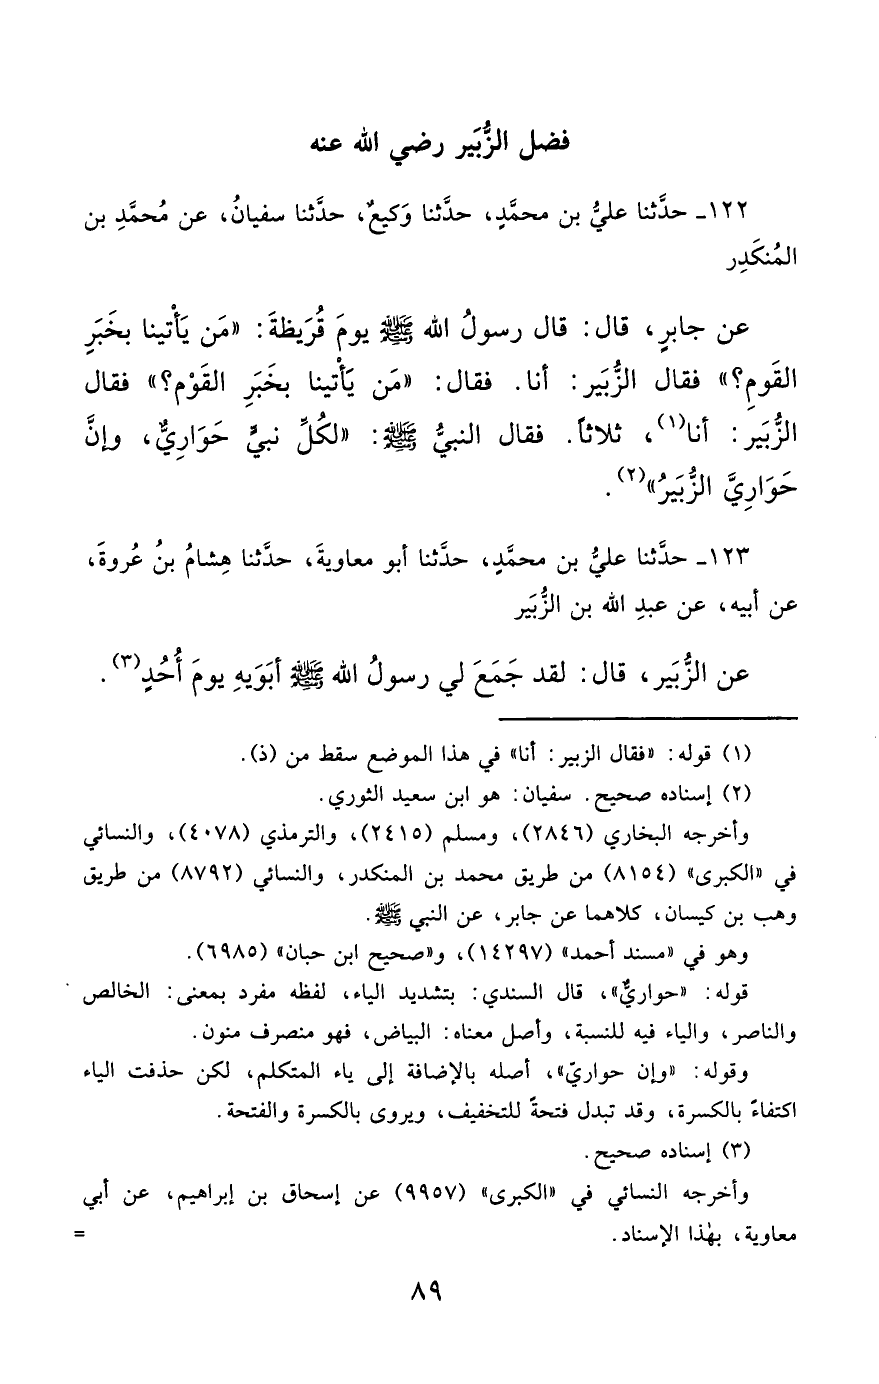 فضل الزُّبَير رضي الله عنه
١٢٢ـ حدَّثنا عليُّ بن محمَّدٍ، حدَّثنا وَكيعٌ، حدَّثنا سفيانُ، عن مُحمَّدِ بن
المُنكَدِر
عن جابرٍ، قال: قال رسولُ الله ﷺ يومَ قُرَيظةَ: «مَن يَأْتينا بخَبَرِ
القَومِ؟» فقال الزُّبَير: أنا. فقال: «مَن يَأْتينا بخَبَرِ القَوْمِ؟» فقال
الزُّبَير: أنا(١)، ثلاثاً. فقال النبيُّ ﷺ: «لكُلِّ نبيٍّ حَوَارِيٌّ، وإنَّ
حَوَارِيَّ الزُّبَيرُ»(٢).
١٢٣ـ حدَّثنا عليُّ بن محمَّدٍ، حدَّثنا أبو معاويةَ، حدَّثنا هِشامُ بنُ عُروةَ،
عن أبيه، عن عبدِ الله بن الزُّبَير
عن الزُّبَير، قال: لقد جَمَعَ لي رسولُ الله ﷺ أبَوَيهِ يومَ أُحُدٍ(٣).
(١) قوله: «فقال الزبير: أنا» في هذا الموضع سقط من (ذ).
(٢) إسناده صحيح. سفيان: هو ابن سعيد الثوري.
وأخرجه البخاري (٢٨٤٦)، ومسلم (٢٤١٥)، والترمذي (٤٠٧٨)، والنسائي
في «الكبرى» (٨١٥٤) من طريق محمد بن المنكدر، والنسائي (٨٧٩٢) من طريق
وهب بن كيسان، كلاهما عن جابر، عن النبي ﷺ.
وهو في «مسند أحمد» (١٤٢٩٧)، و«صحيح ابن حبان» (٦٩٨٥).
قوله: «حواريٌّ»، قال السندي: بتشديد الياء، لفظه مفرد بمعنى: الخالص
والناصر، والياء فيه للنسبة، وأصل معناه: البياض، فهو منصرف منون.
وقوله: «وإن حواريّ»، أصله بالإضافة إلى ياء المتكلم، لكن حذفت الياء
اكتفاءً بالكسرة، وقد تبدل فتحةً للتخفيف، ويروى بالكسرة والفتحة.
(٣) إسناده صحيح.
وأخرجه النسائي في «الكبرى» (٩٩٥٧) عن إسحاق بن إبراهيم، عن أبي
معاوية، بهٰذا الإسناد. =
٨٩